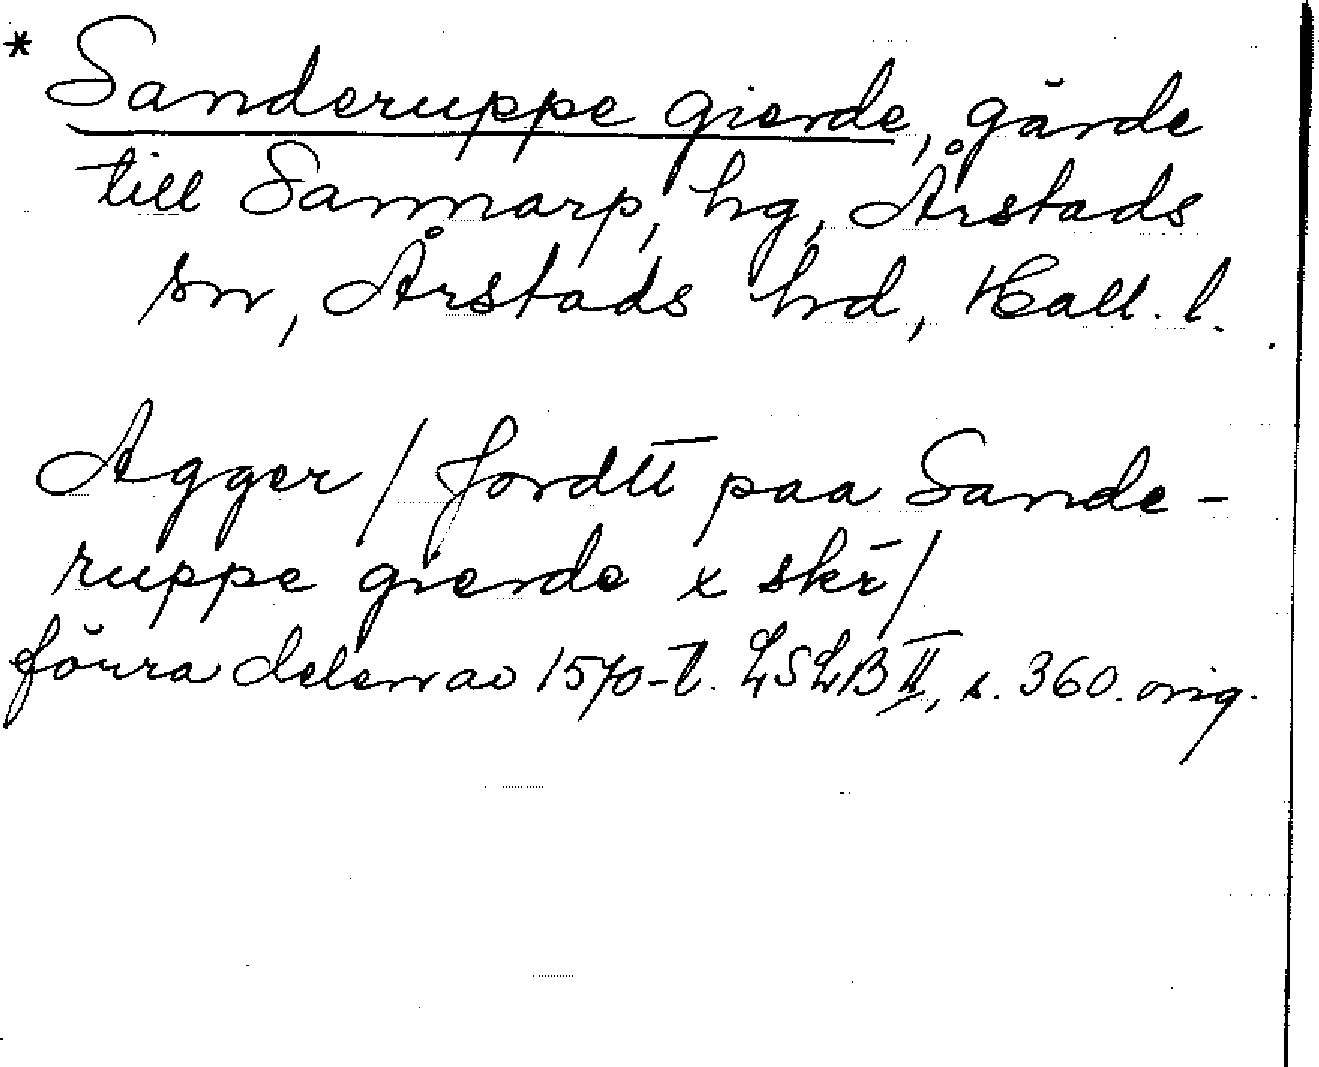 * Sanderuppe gierde, gärde
till Sannarp, hg, Årstads
sn, Årstads hd, Hall. l.
Agger / fordtt paa Sande-
ruppe gierde x skr̄ /
förra delen av 1570-t. LSLB II, s. 360. orig.